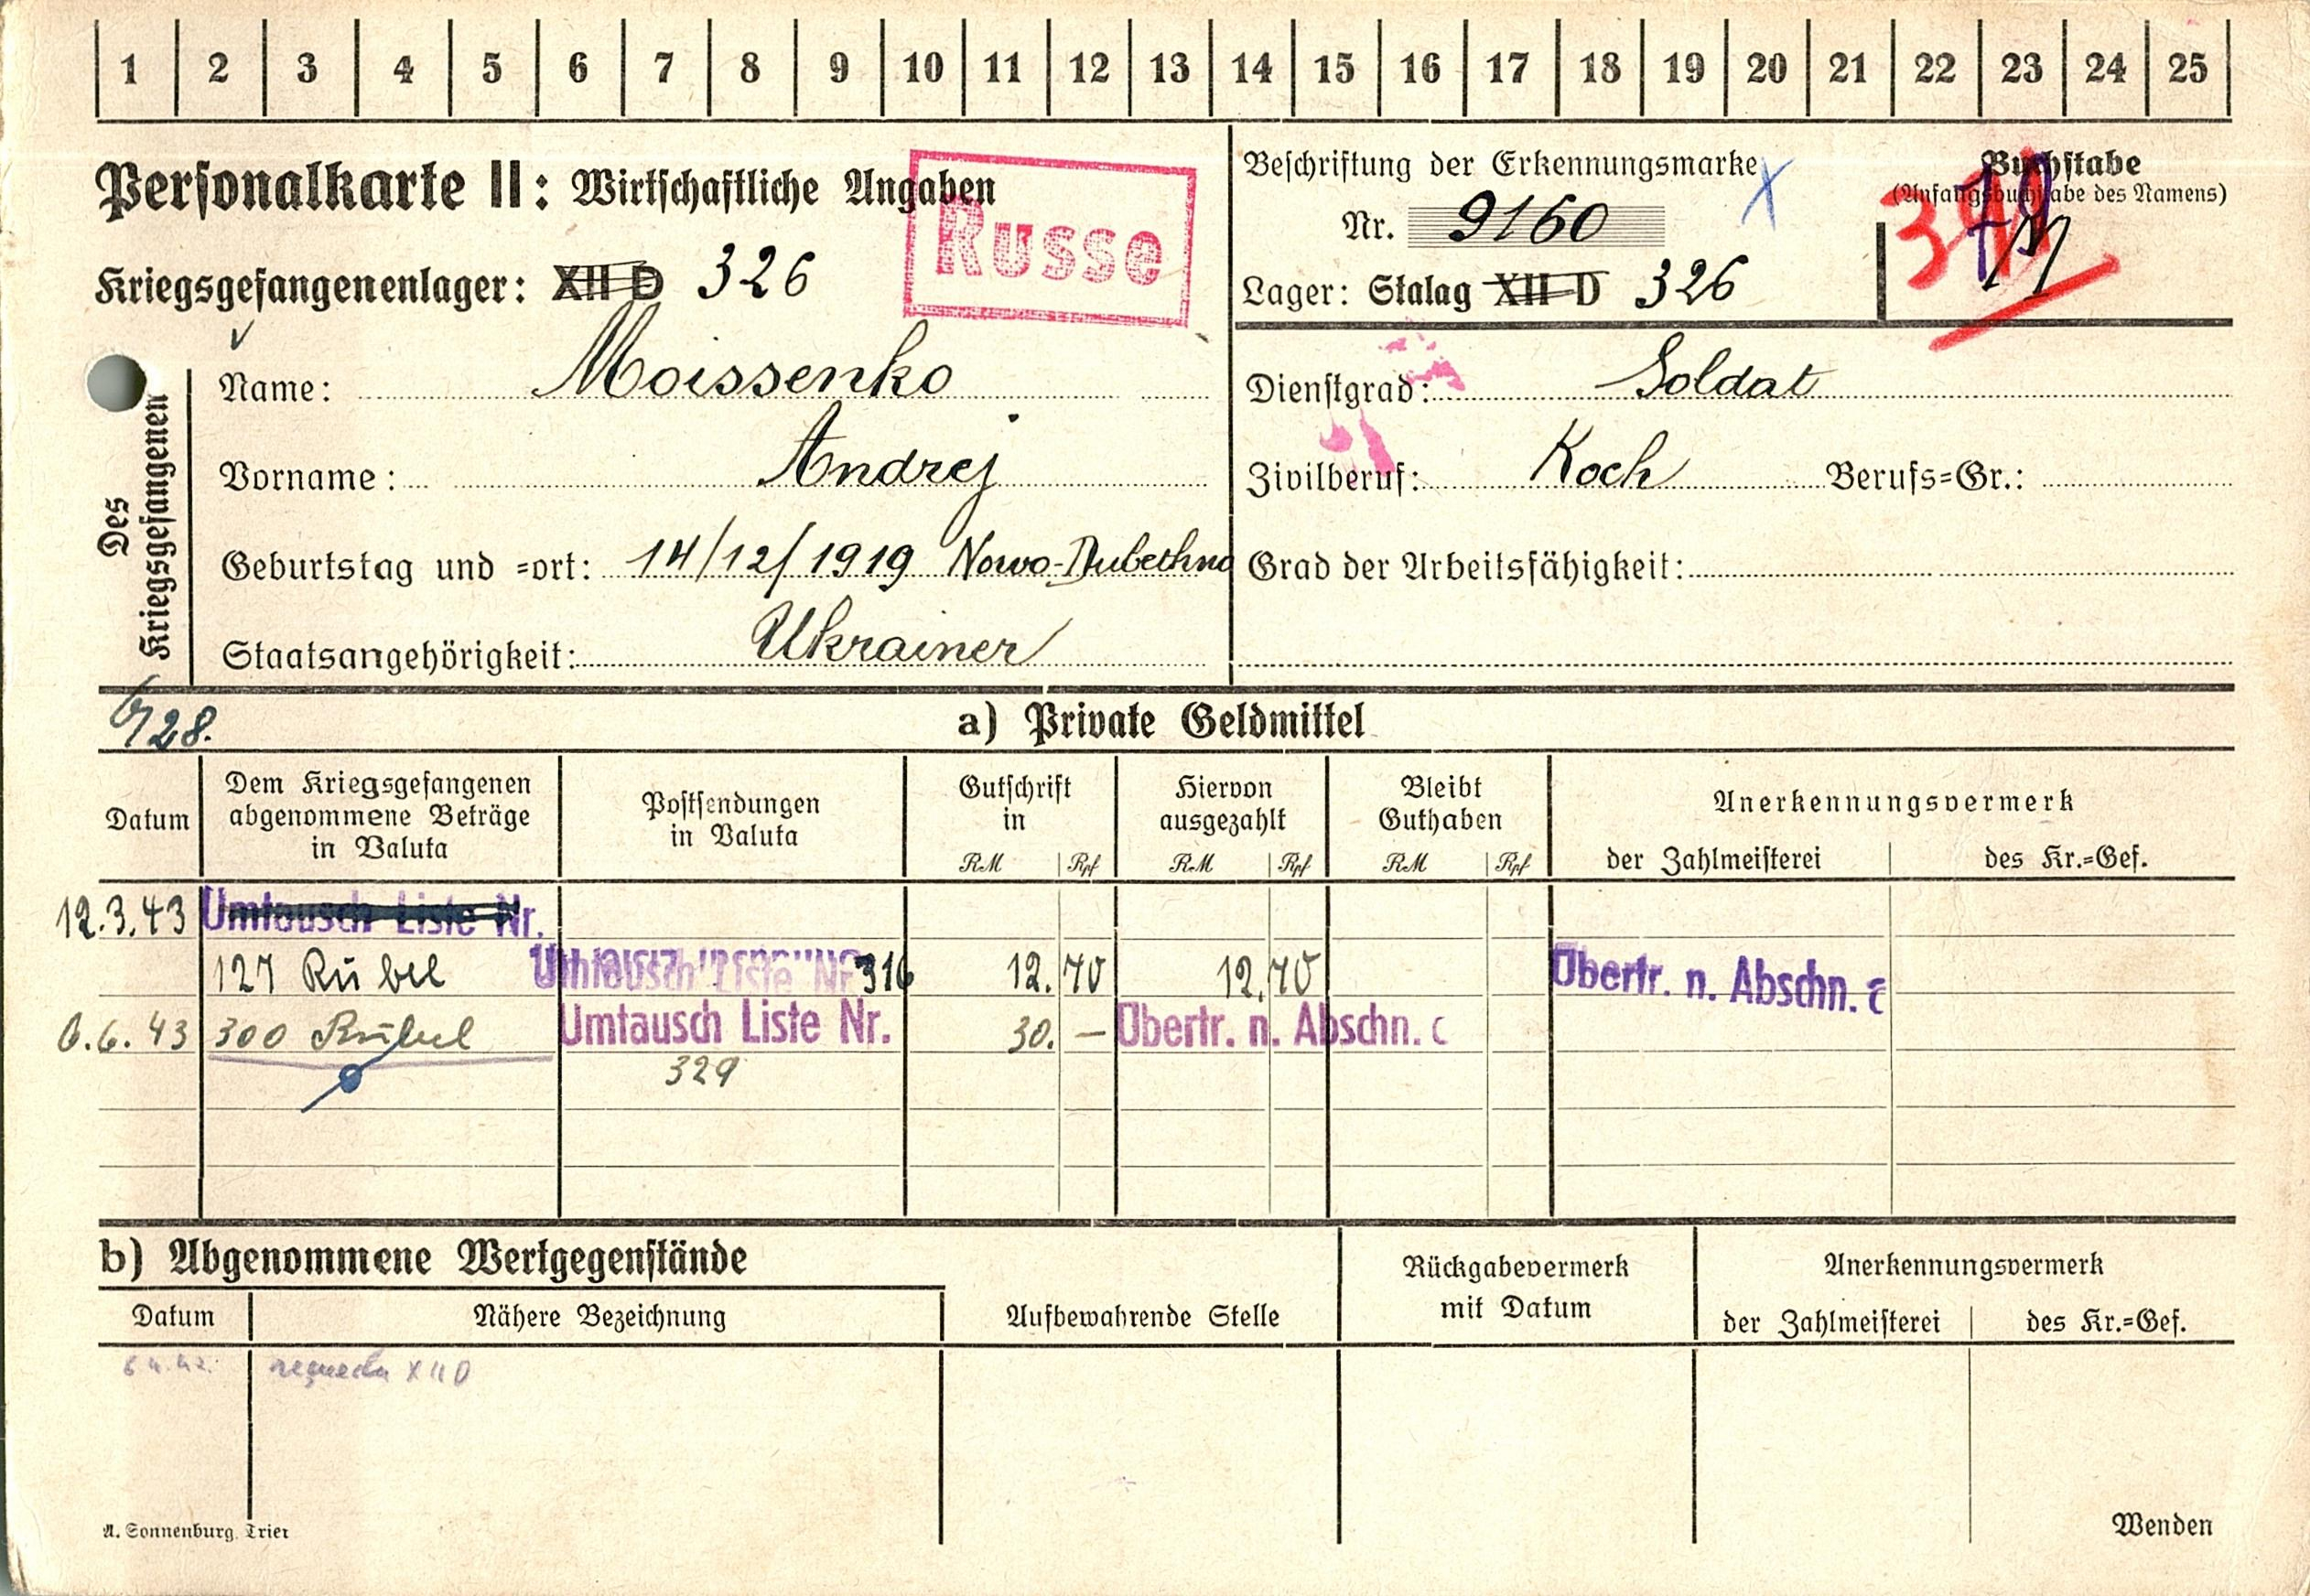 1 2 3 4 5 6 7 8 9 10 11 12 13 14 15 16 17 18 19 20 21 22 23 24 25
Personalkarte II: Wirtschaftliche Angaben
Russe
Kriegsgefangenenlager: XII D 326
Beschriftung der Erkennungsmarke X
Nr. 9160
Lager: Stalag XII D 326
Buchstabe
(Anfangsbuchstabe des Namens)
Des Kriegsgefangenen
Name: Moissenko
Vorname: Andrej
Geburtstag und =ort: 14/12/1919 Nowo-
Staatsangehörigkeit: Ukrainer
Dienstgrad: Soldat
Zivilberuf: Koch Berufs=Gr.:
Grad der Arbeitsfähigkeit:
728.
a) Private Geldmittel
Datum
Dem Kriegsgefangenen abgenommene Beträge in Valuta
Postsendungen in Valuta
Gutschrift in RM Rpf
Hiervon ausgezahlt RM Rpf
Bleibt Guthaben RM Rpf
Anerkennungsvermerk
der Zahlmeisterei des Kr.=Gef.
12.3.43 Umtausch Liste Nr.
127 Rubel Umtausch Liste Nr. 316 12.70 12.70 Übertr. n. Abschn. c
6.43 300 Rubel Umtausch Liste Nr. 30. — Übertr. n. Abschn. c
329
b) Abgenommene Wertgegenstände
Datum
Nähere Bezeichnung
Aufbewahrende Stelle
Rückgabevermerk mit Datum
Anerkennungsvermerk
der Zahlmeisterei des Kr.=Gef.
X II D
A. Sonnenburg, Trier
Wenden